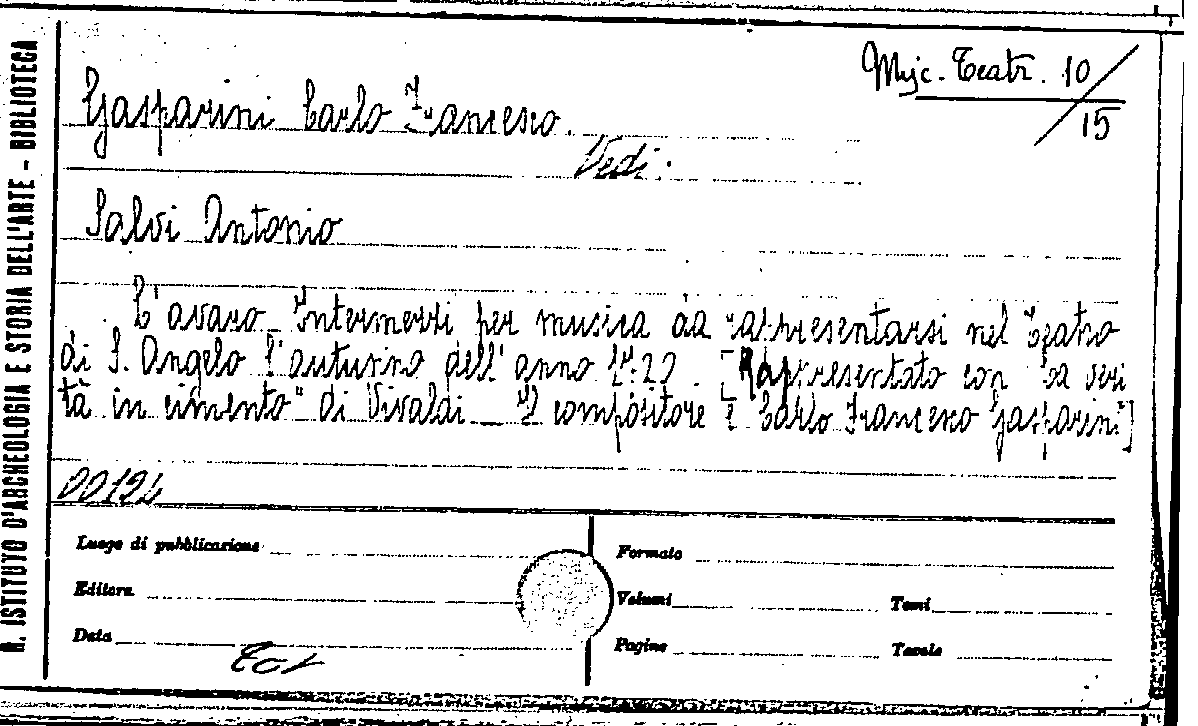 R. ISTITUTO D'ARCHEOLOGIA E STORIA DELL'ARTE - BIBLIOTECA
Misc. Teatr. 10/15
Gasparini Carlo Francesco.
Vedi:
Salvi Antonio
L'avaro Intermezzi per musica da rappresentarsi nel Teatro
di S. Angelo l'autunno dell'anno 1720. [Rappresentato con "La veri
tà in cimento" di Vivaldi. Il compositore è Carlo Francesco Gasparini]
Luogo di pubblicazione
Formato
Editore
Volumi
Tomi
Data
Pagine
Tavole